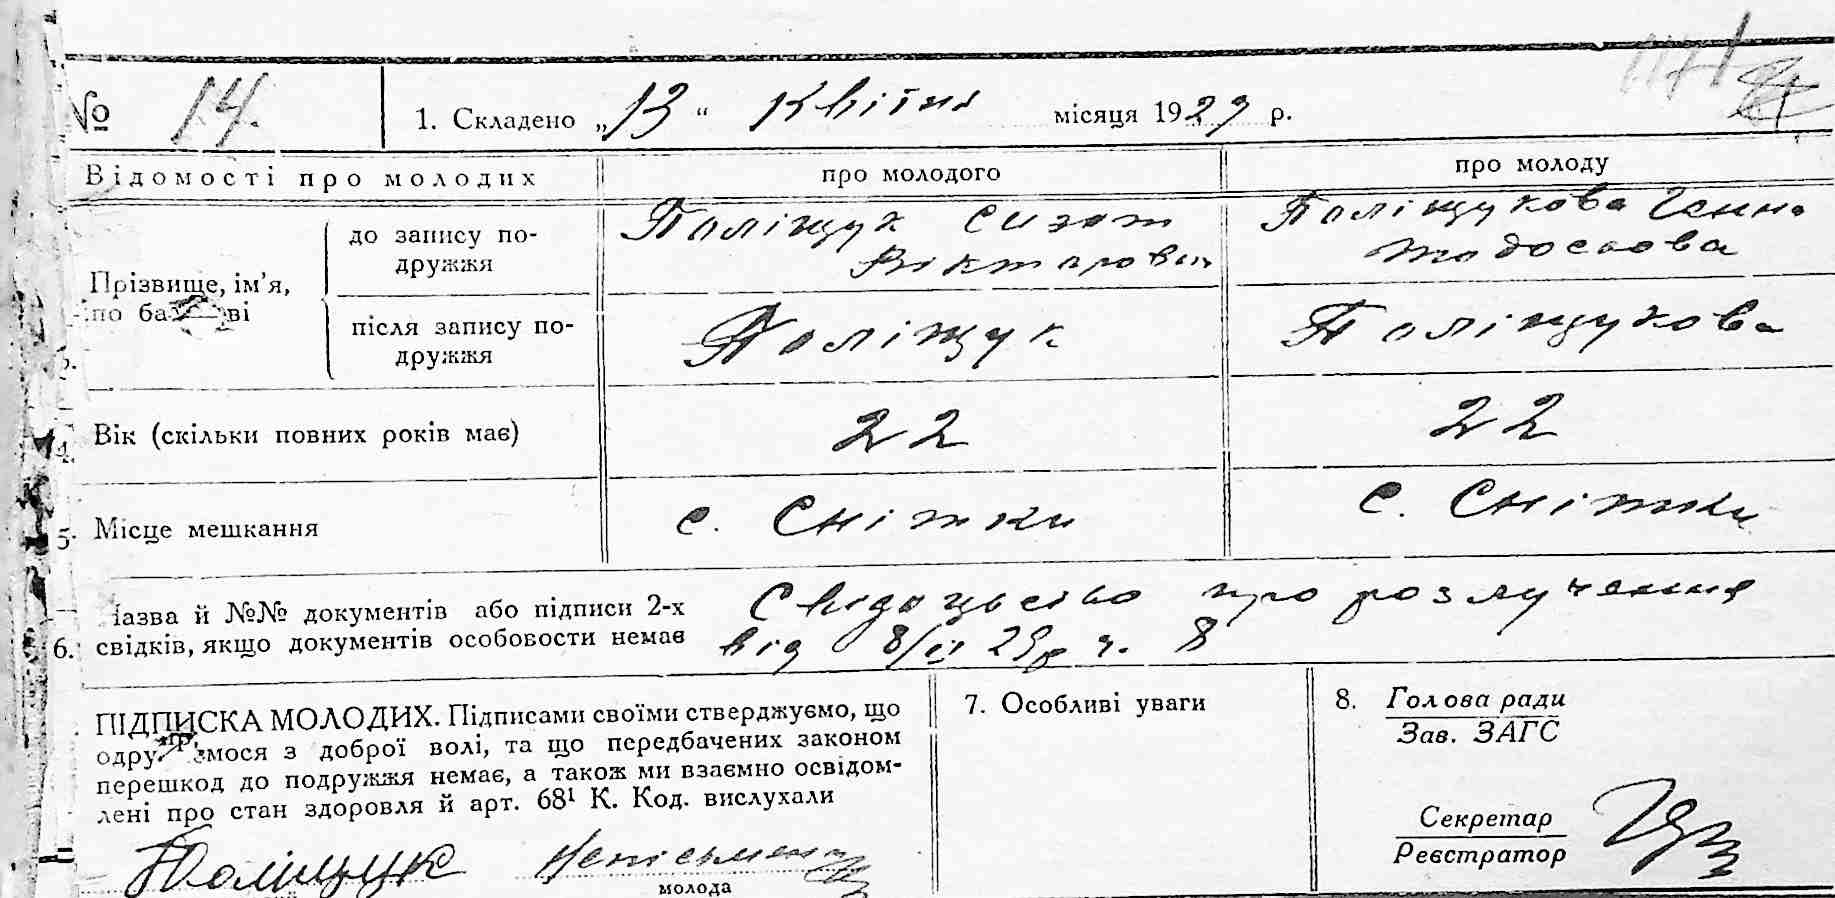 № 14. 1. Складено „13“ Квітня місяця 1929 р.
Відомості про молодих про молодого про молоду
Прізвище, ім’я, по ба ві
до запису подружжя
Поліщук Сизот
Вікторович
Поліщукова Ганна
Тодосьова
після запису по-
дружжя
Поліщук
Поліщукова
4. Вік (скільки повних років має) 22 22
5. Місце мешкання с. Снітки с. Снітки
6. Назва й №№ документів або підписи 2-х
свідків, якщо документів особовости немає
Свидоцьство про розлучення
від 8/II 29р ч. 8
ПІДПИСКА МОЛОДИХ. Підписами своїми стверджуємо, що
одру ємося з доброї волі, та що передбачених законом
перешкод до подружжя немає, а також ми взаємно освідом-
лені про стан здоровля й арт. 68¹ К. Код. вислухали
Поліщук Неписьменна
молода
7. Особливі уваги
8. Голова ради
Зав. ЗАГС
Секретар
Реєстратор